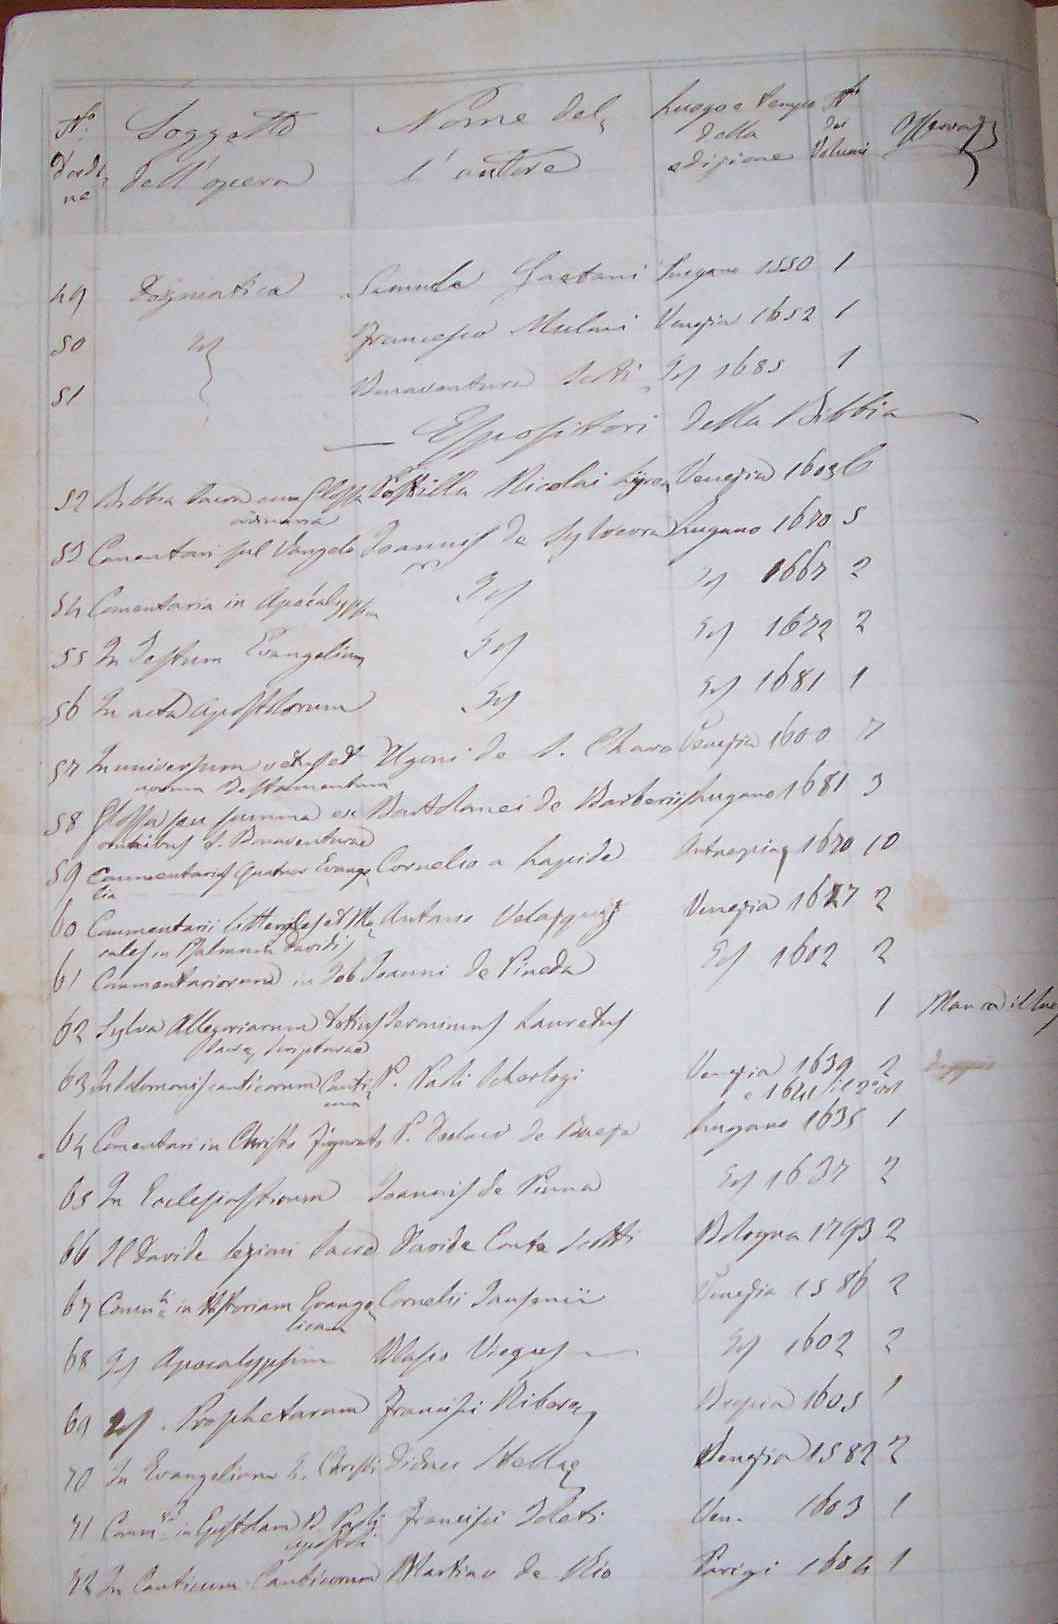 N.° d'ordine Soggetto dell'opera Nome dell'autore Luogo e tempo della edizione N.° dei Volumi
49 Dogmatica Gaetani Lugano 1550 1
50 Id Francesco Venezia 1652 1
51 Bonaventura Id 1685 1
Espositori della Bibbia
52 Bibbia Sacra cum Glossa ordinaria Postilla Nicolai Lyra Venezia 1603 6
53 Comentari sul Vangelo Joannes de Sylveira Lugano 1670 5
54 Comentaria in Apocalypsim Id Id 1667 2
55 In Textum Evangelium Id Id 1672 2
56 In acta apostolorum Id Id 1681 1
57 In universum vetus et novum Testamentum Ugoni de S. Charo Venezia 1600 7
58 Glossa seu summa ex omnibus S. Bonaventurae Bartolomei de Barberiis Lugano 1681 3
59 Commentarius quatuor Evangelia Cornelio a Lapide Antuerpia 1670 10
60 Commentarii litterales et Morales in Psalmum Davidis Antonio Venezia 2
61 Commentariorum in Job Joanni de Pineda Id 1602 2
62 Sylva Allegoriarum totius Sacrae Scripturae Jeronimus Lauretus 1 Manca il
63 In Salomonis canticorum P. Pauli Scherlogi Venezia 1639 2
64 Comentari in Christo figurato P. Lugano 1635 1
65 In Ecclesiasticum Joannis de Pinna Id 1637 2
66 Il Davide lezioni sacre Davide Conte Scotti Bologna 1793 2
67 in Historiam Evangelicam Cornelii Jansenii Venezia 1586 2
68 Id Apocalypsim Blasio Viegas Id 1602 2
69 Id. Prophetarum Francisci Ribera Brescia 1605 1
70 In Evangelium Christi Didaci Stellae Venezia 1582 2
71 in Epistolam Pauli apostoli Francisci Toleti Ven. 1603 1
72 In Canticum Canticorum Martino de Rio Parigi 1604 1